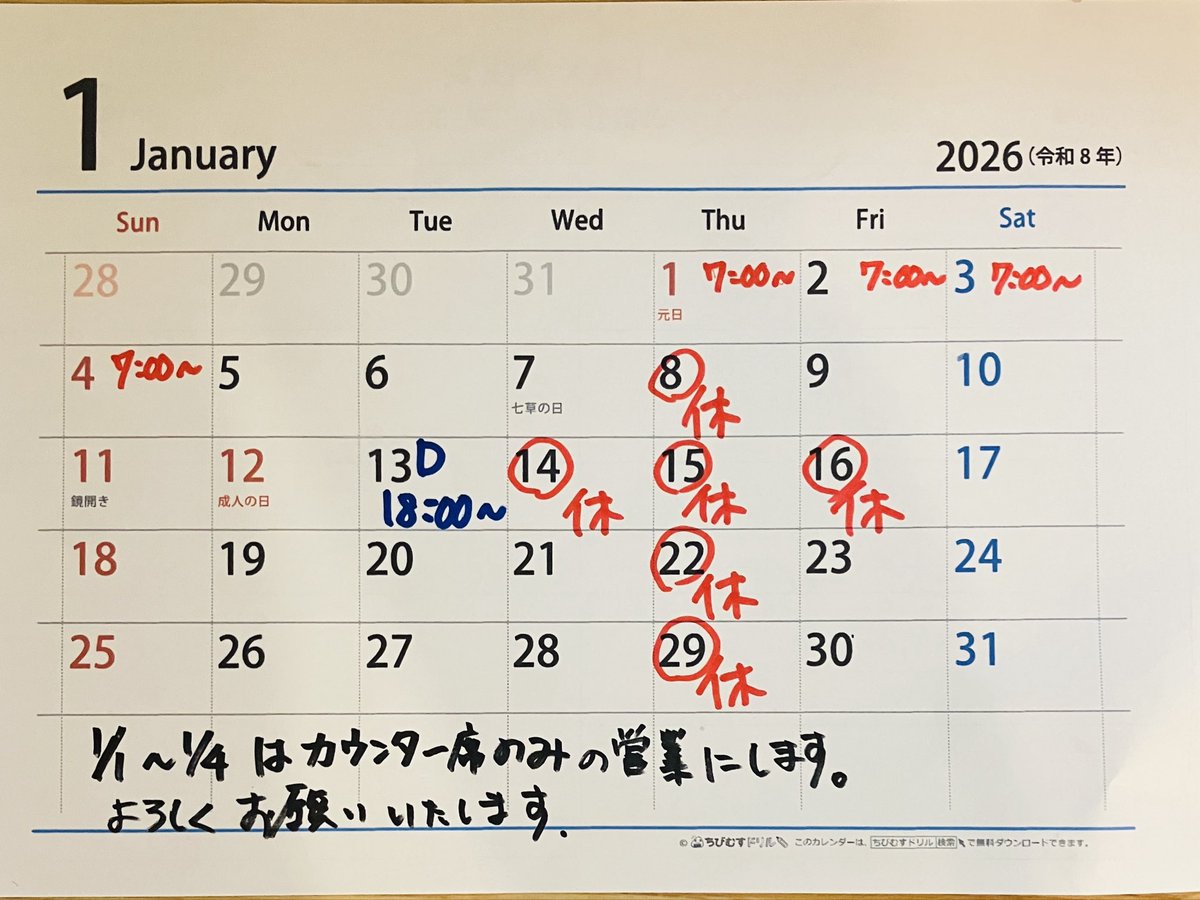 1 January 2026(令和8年)
Sun Mon Tue Wed Thu Fri Sat
28 29 30 31 1 7:00~ 2 7:00~ 3 7:00~
元日
4 7:00~ 5 6 7 8 9 10
七草の日 休
11 12 13 D 14 15 16 17
鏡開き 成人の日 18:00~ 休 休 休
18 19 20 21 22 23 24
休
25 26 27 28 29 30 31
休
1/1~1/4はカウンター席のみの営業にします。
よろしくお願いいたします.
© ちびむすドリル このカレンダーは、ちびむすドリル 検索 で無料ダウンロードできます。